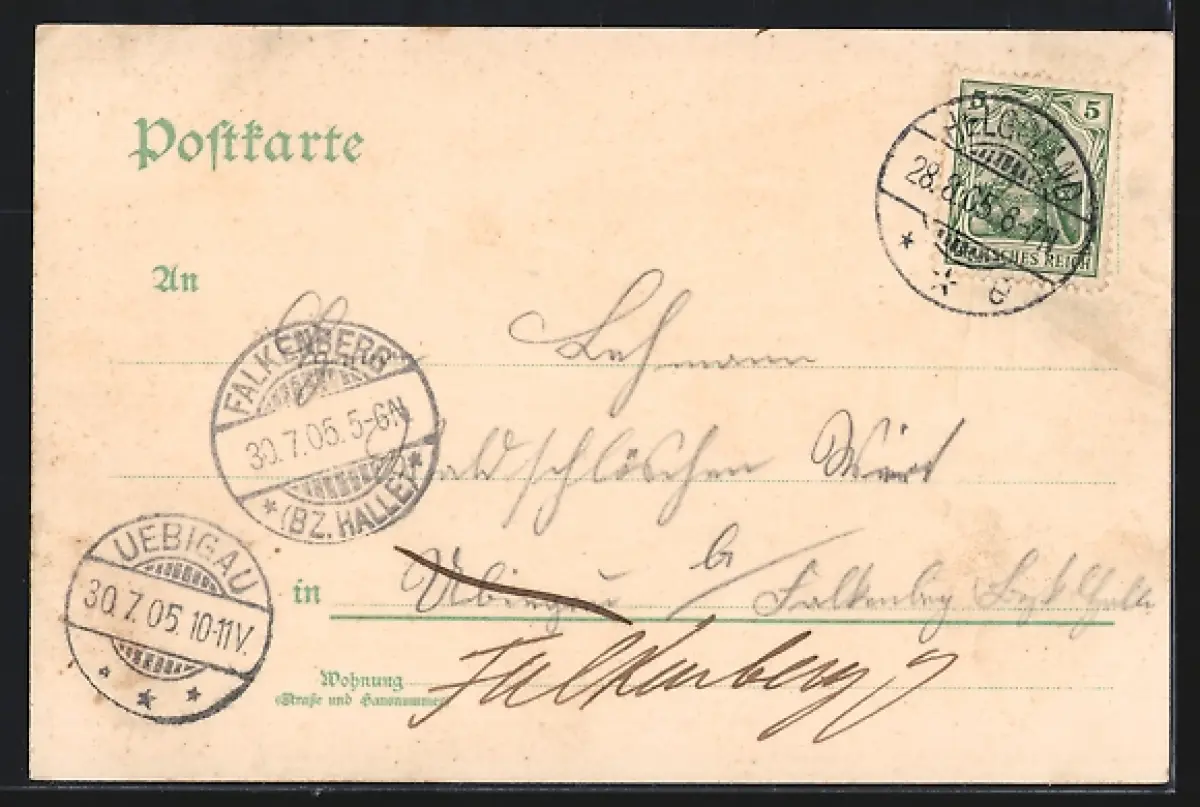 Postkarte
5 5
DEUTSCHES REICH
HELGOLAND
28.8.05.6-7N
* * e
An
Lehmann
FALKENBERG
30.7.05.5-6N.
* (BZ. HALLE) *
Waldschlöschen Wirt
UEBIGAU
30.7.05.10-11V.
* * *
in Übigau b/ Falkenberg Bezk Halle
Wohnung
(Straße und Hausnummer)
Falkenberg